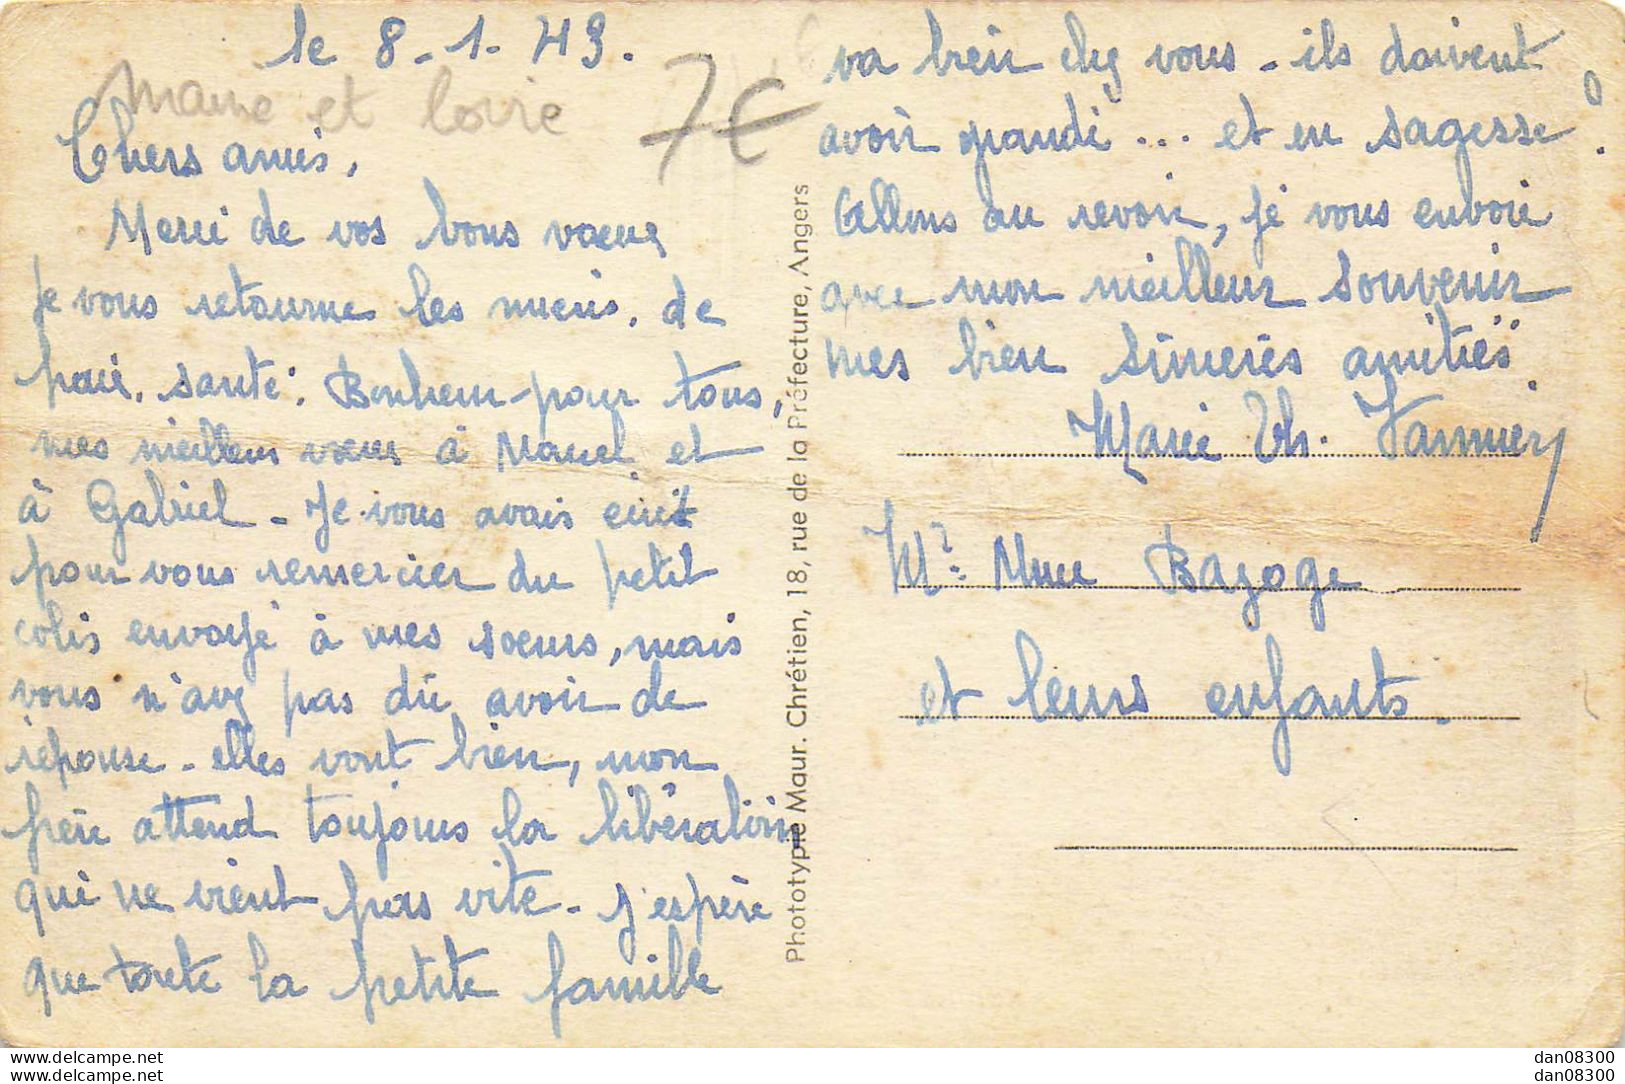 le 8-1-43.
Maine et Loire
7€
Chers amis,
Merci de vos bons vœux
je vous retourne les miens, de
paix, santé, Bonheur pour tous,
mes meilleurs vœux à Marcel et
à Gabriel - Je vous avais écrit
pour vous remercier du petit
colis envoyé à mes sœurs, mais
vous n'avez pas dû avoir de
réponse - elles vont bien, mon
frère attend toujours la libération
qui ne vient pas vite - J'espère
que toute la petite famille
va bien chez vous - ils doivent
avoir grandi ... et en sagesse ?
Allons au revoir, je vous envoie
avec mon meilleur souvenir
mes bien sincères amitiés.
Marie Th.
Mr. Mme Bazoge
et leurs enfants.
Phototypie Maur. Chrétien, 18, rue de la Préfecture, Angers
www.delcampe.net
www.delcampe.net
dan08300
dan08300